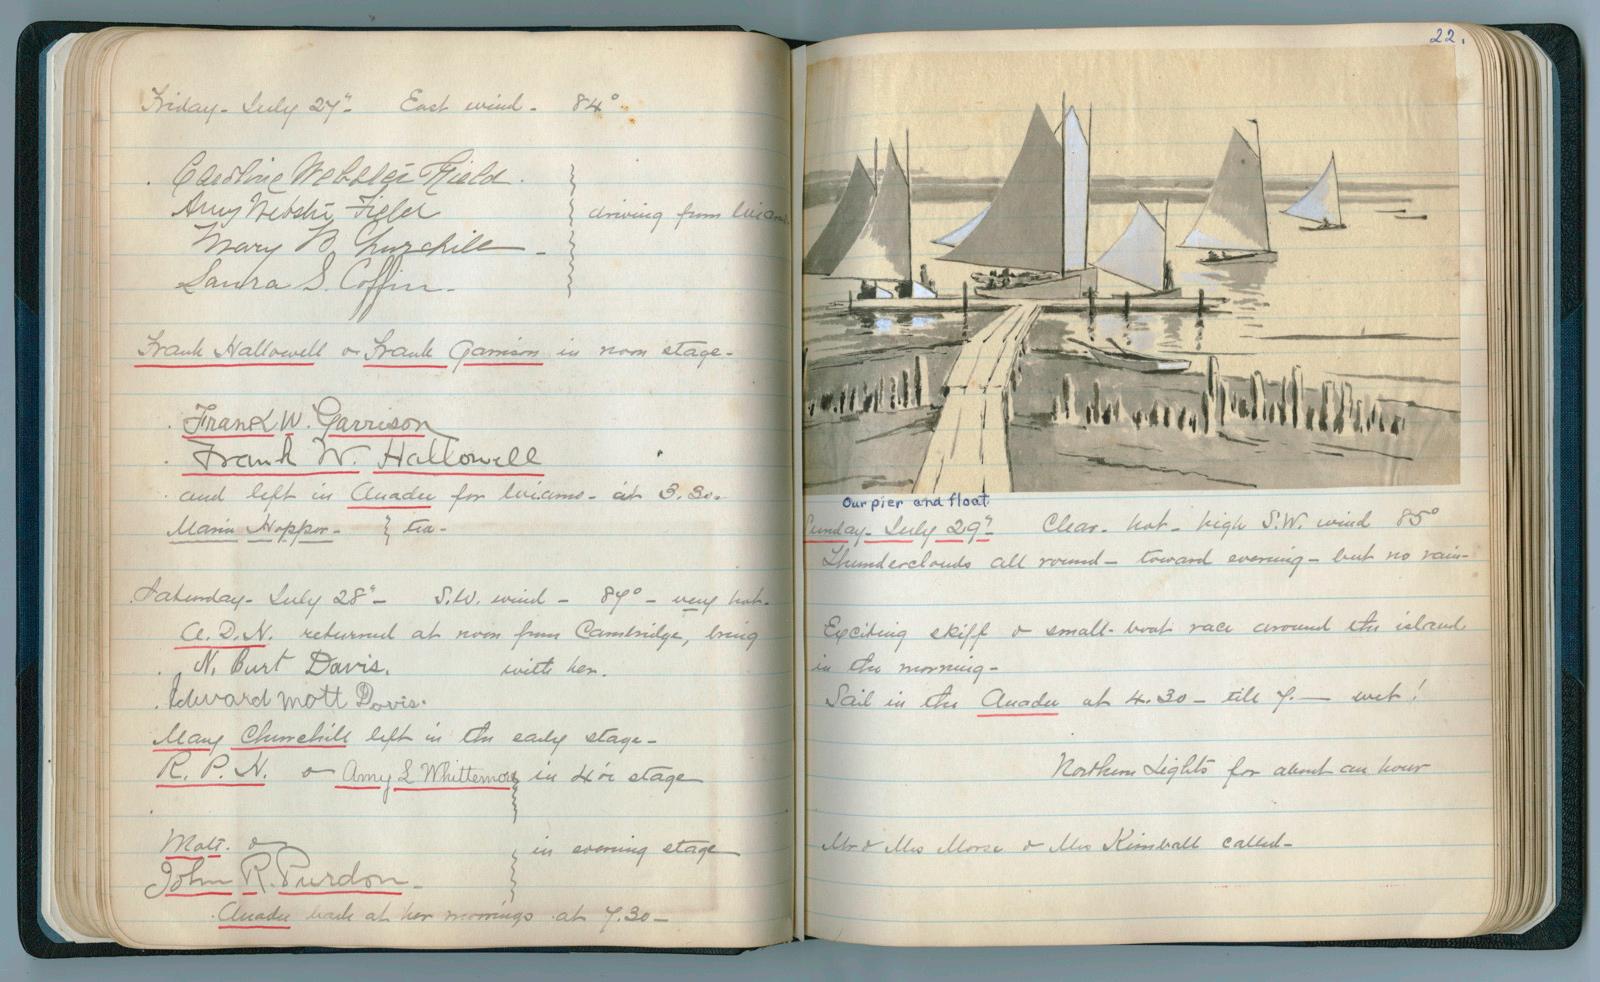 Friday - July 27" - East wind - 84°
Caroline Webster Field.
Amy Webster Field
driving from
Mary B. Churchill -
Laura S. Coffin. -
Frank Hallowell & Frank Garrison in noon stage -
Frank W. Garrison
Frank W. Hallowell
and left in Anadee for Wianno - at 3.30.
Maria Hopper - } tea -
Saturday - July 28" - S.W. wind - 84° - very hot -
A.D.N. returned at noon from Cambridge, bring
N. Burt Davis. with her.
Edward Mott Davis.
Mary Churchill left in the early stage -
R.P.N. & Amy L Whittemore in 4 o'c stage
Mott. &
in evening stage
John R. Purdon -
Anadee back at her moorings at 7.30 -
22.
Our pier and float
Sunday - July 29" - Clear - hot - high S.W. wind 85°
Thunderclouds all round - toward evening - but no rain -
Exciting skiff & small-boat race around the island
in the morning -
Sail in the Anadee at 4.30 - till 7. — wet!
Northern Lights for about an hour
Mr & Mrs Morse & Mrs Kimball called -